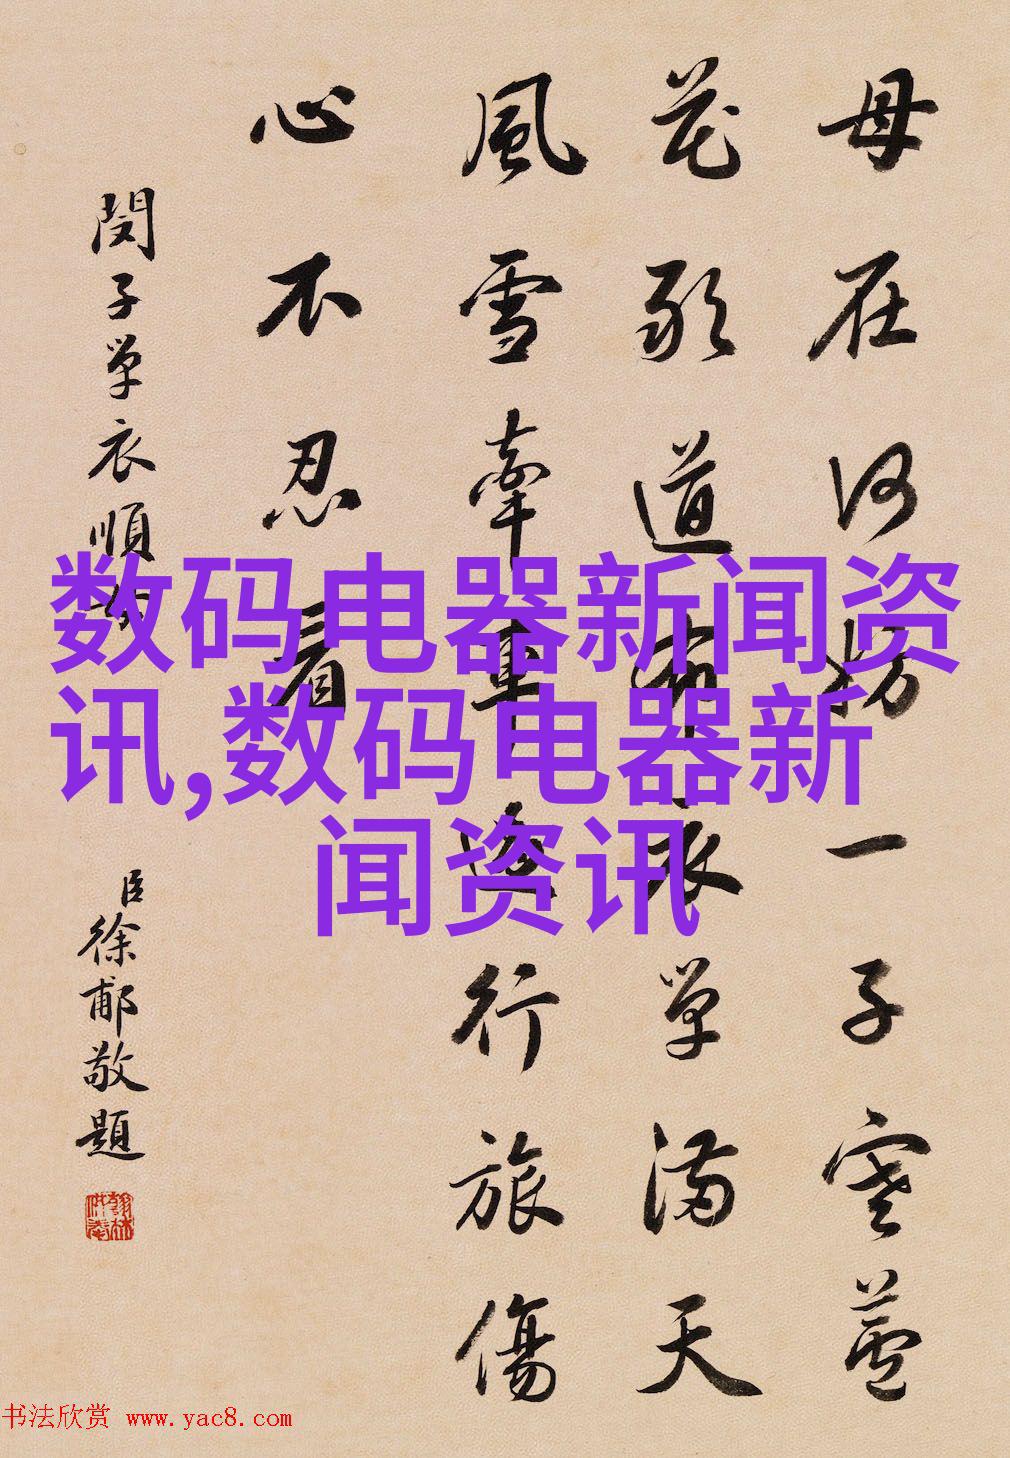 母在何妨一子寒蘆
花敢道布衣单滿天
風雪牽車遠行旅傷
心不忍看
閔子单衣順母
臣徐郙敬題
数码电器新闻资
讯,数码电器新
闻资讯
书法欣赏 www.yac8.com